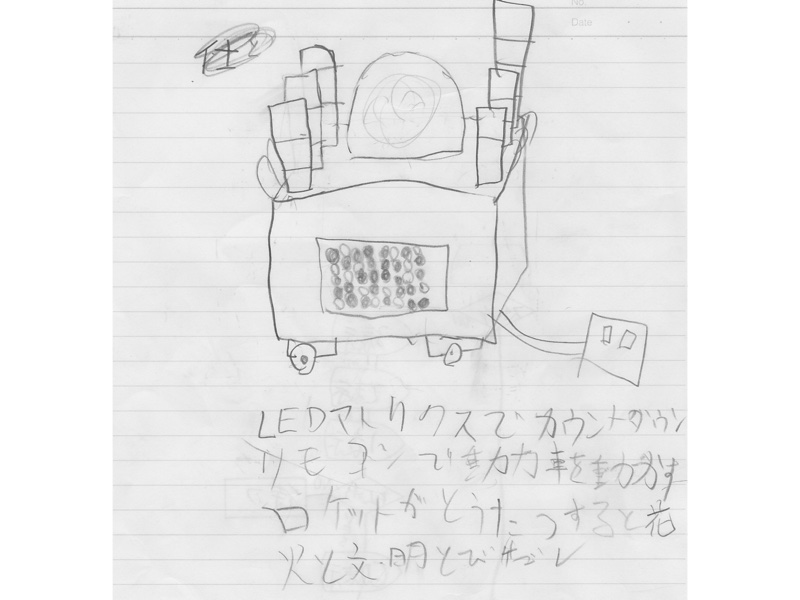 No.
Date
LEDマトリクスでカウントダウン
リモコンで動力車を動かす
ロケットがとうたつすると花
火と文明とび